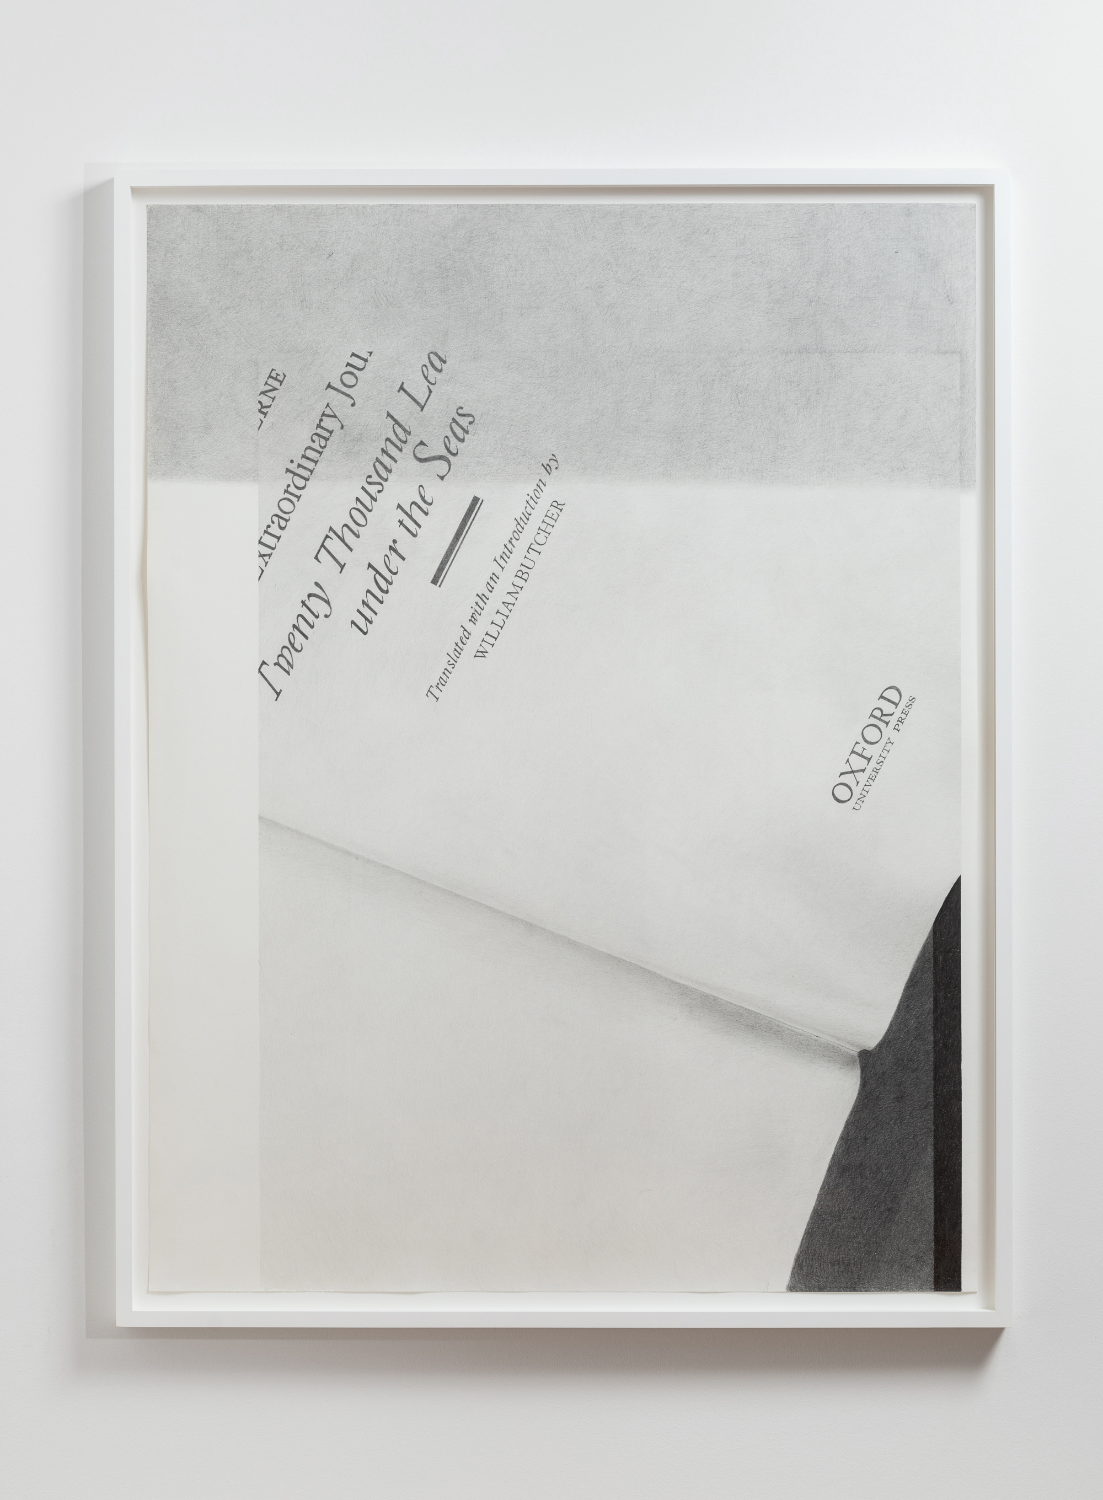 ERNE
Extraordinary Jou
Twenty Thousand Lea
under the Seas
Translated with an Introduction by
WILLIAM BUTCHER
OXFORD
UNIVERSITY PRESS